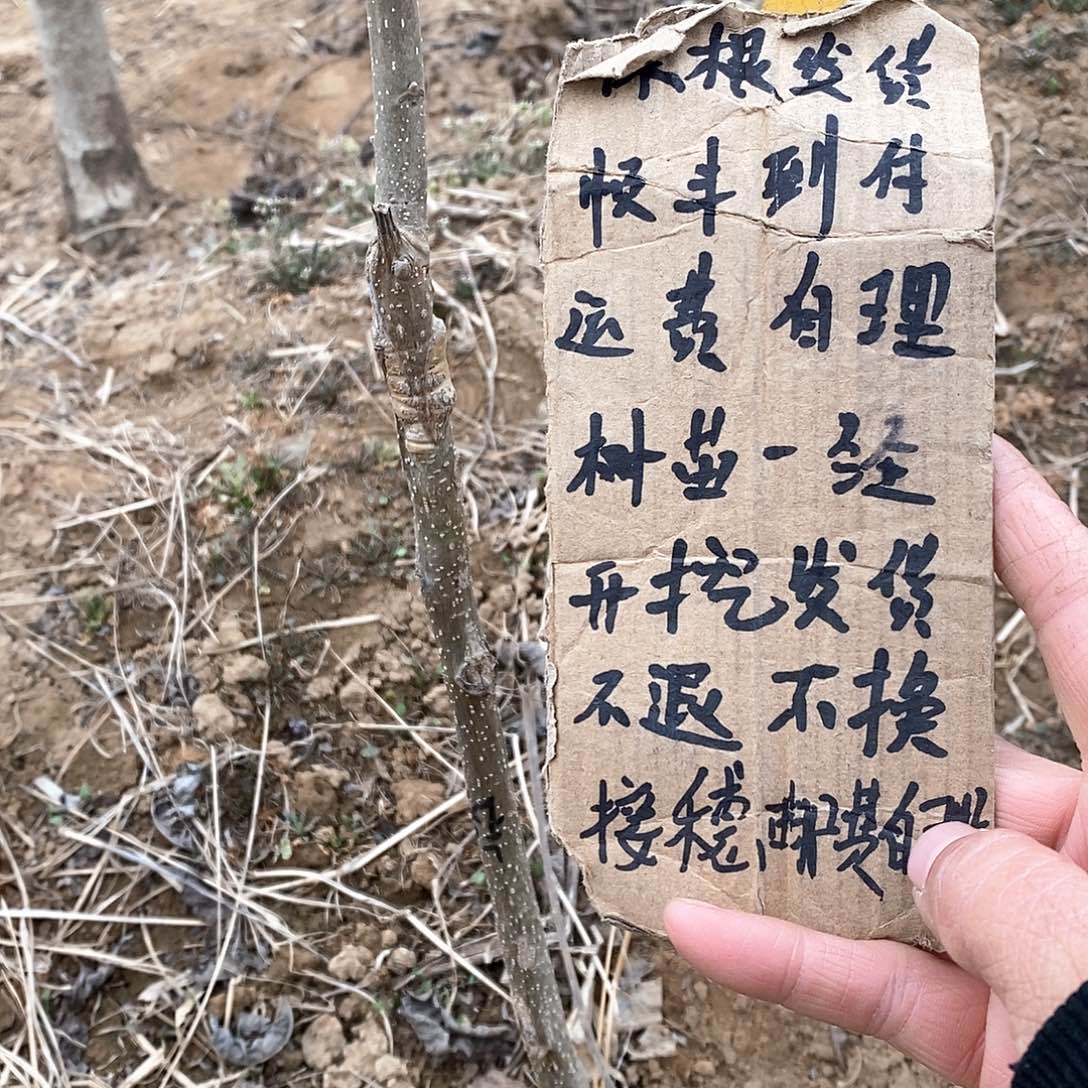 根发货
顺丰到付
运费自理
树苗一经
开挖发货
不退不换
接穗自